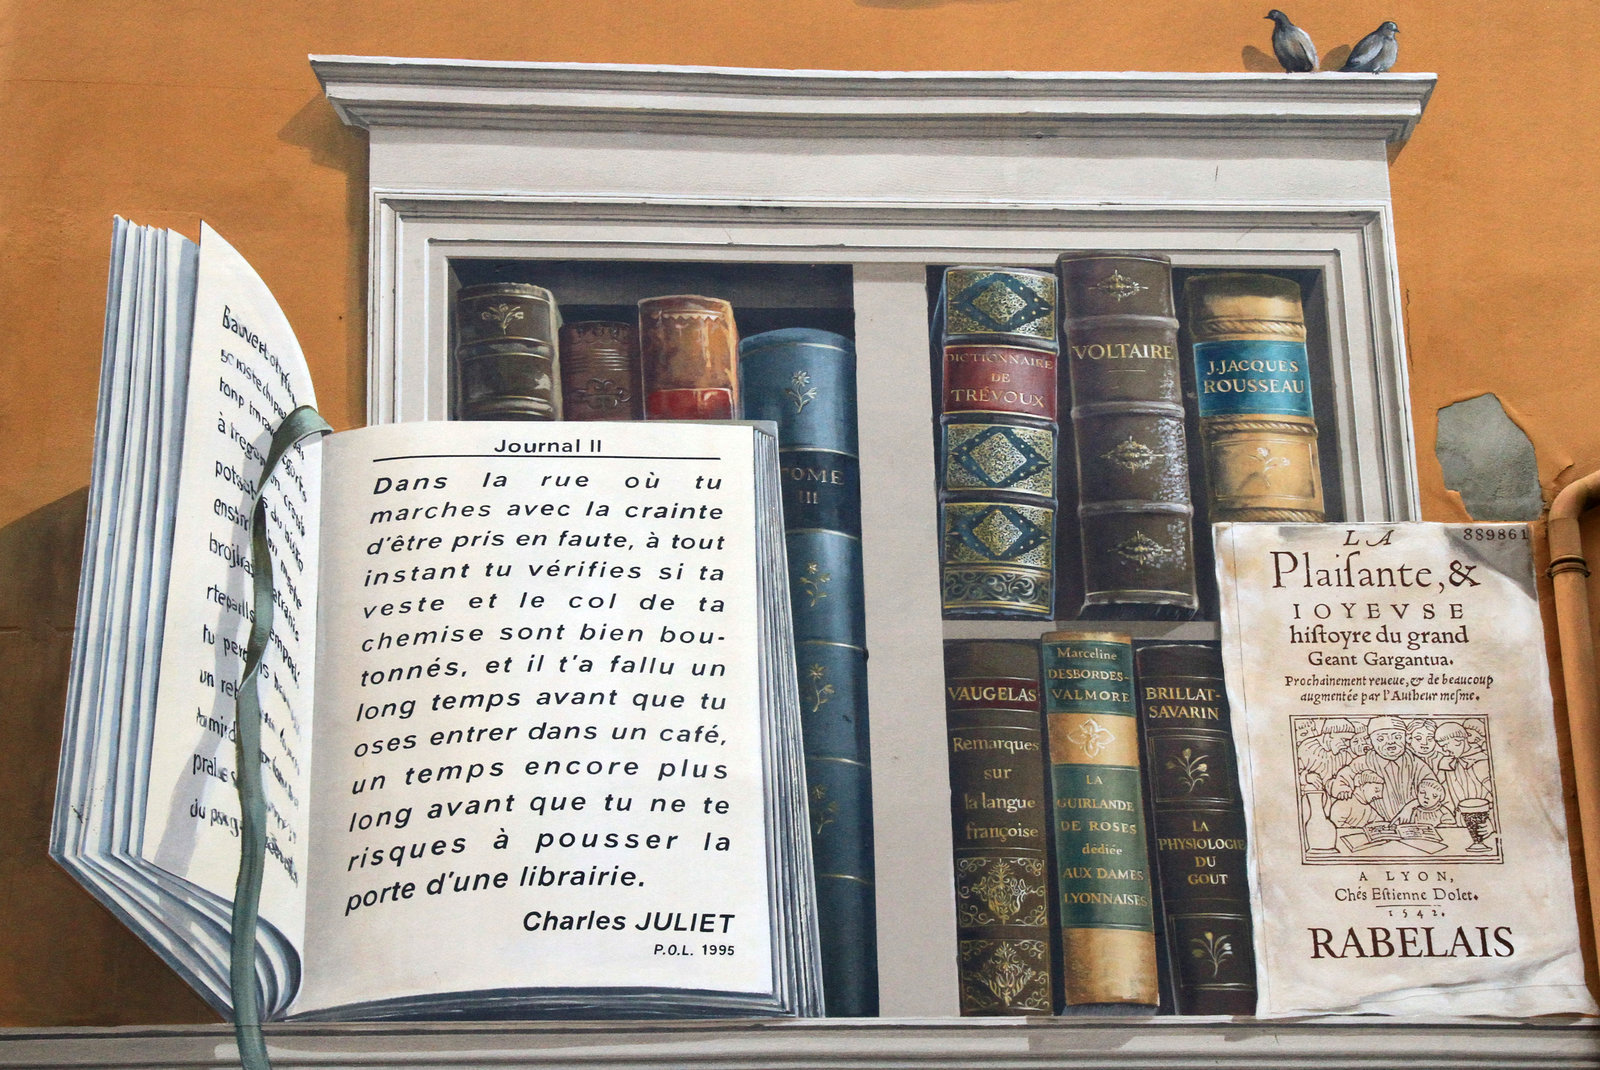 Journal II
Dans la rue où tu
marches avec la crainte
d'être pris en faute, à tout
instant tu vérifies si ta
veste et le col de ta
chemise sont bien bou-
tonnés, et il t'a fallu un
long temps avant que tu
oses entrer dans un café,
un temps encore plus
long avant que tu ne te
risques à pousser la
porte d'une librairie.
Charles JULIET
P.O.L. 1995
TOME
III
DICTIONNAIRE
DE
TRÉVOUX
VOLTAIRE
J.JACQUES
ROUSSEAU
VAUGELAS
Remarques
sur
la langue
françoise
Marceline
DESBORDES-
VALMORE
LA
GUIRLANDE
DE ROSES
dédiée
AUX DAMES
LYONNAISES
BRILLAT-
SAVARIN
LA
PHYSIOLOGIE
DU
GOUT
889861
LA
Plaiſante, &
IOYEVSE
hiſtoyre du grand
Geant Gargantua.
Prochainement reueue, & de beaucoup
augmentée par l'Autheur meſme.
A LYON,
Chés Eſtienne Dolet.
1542.
RABELAIS